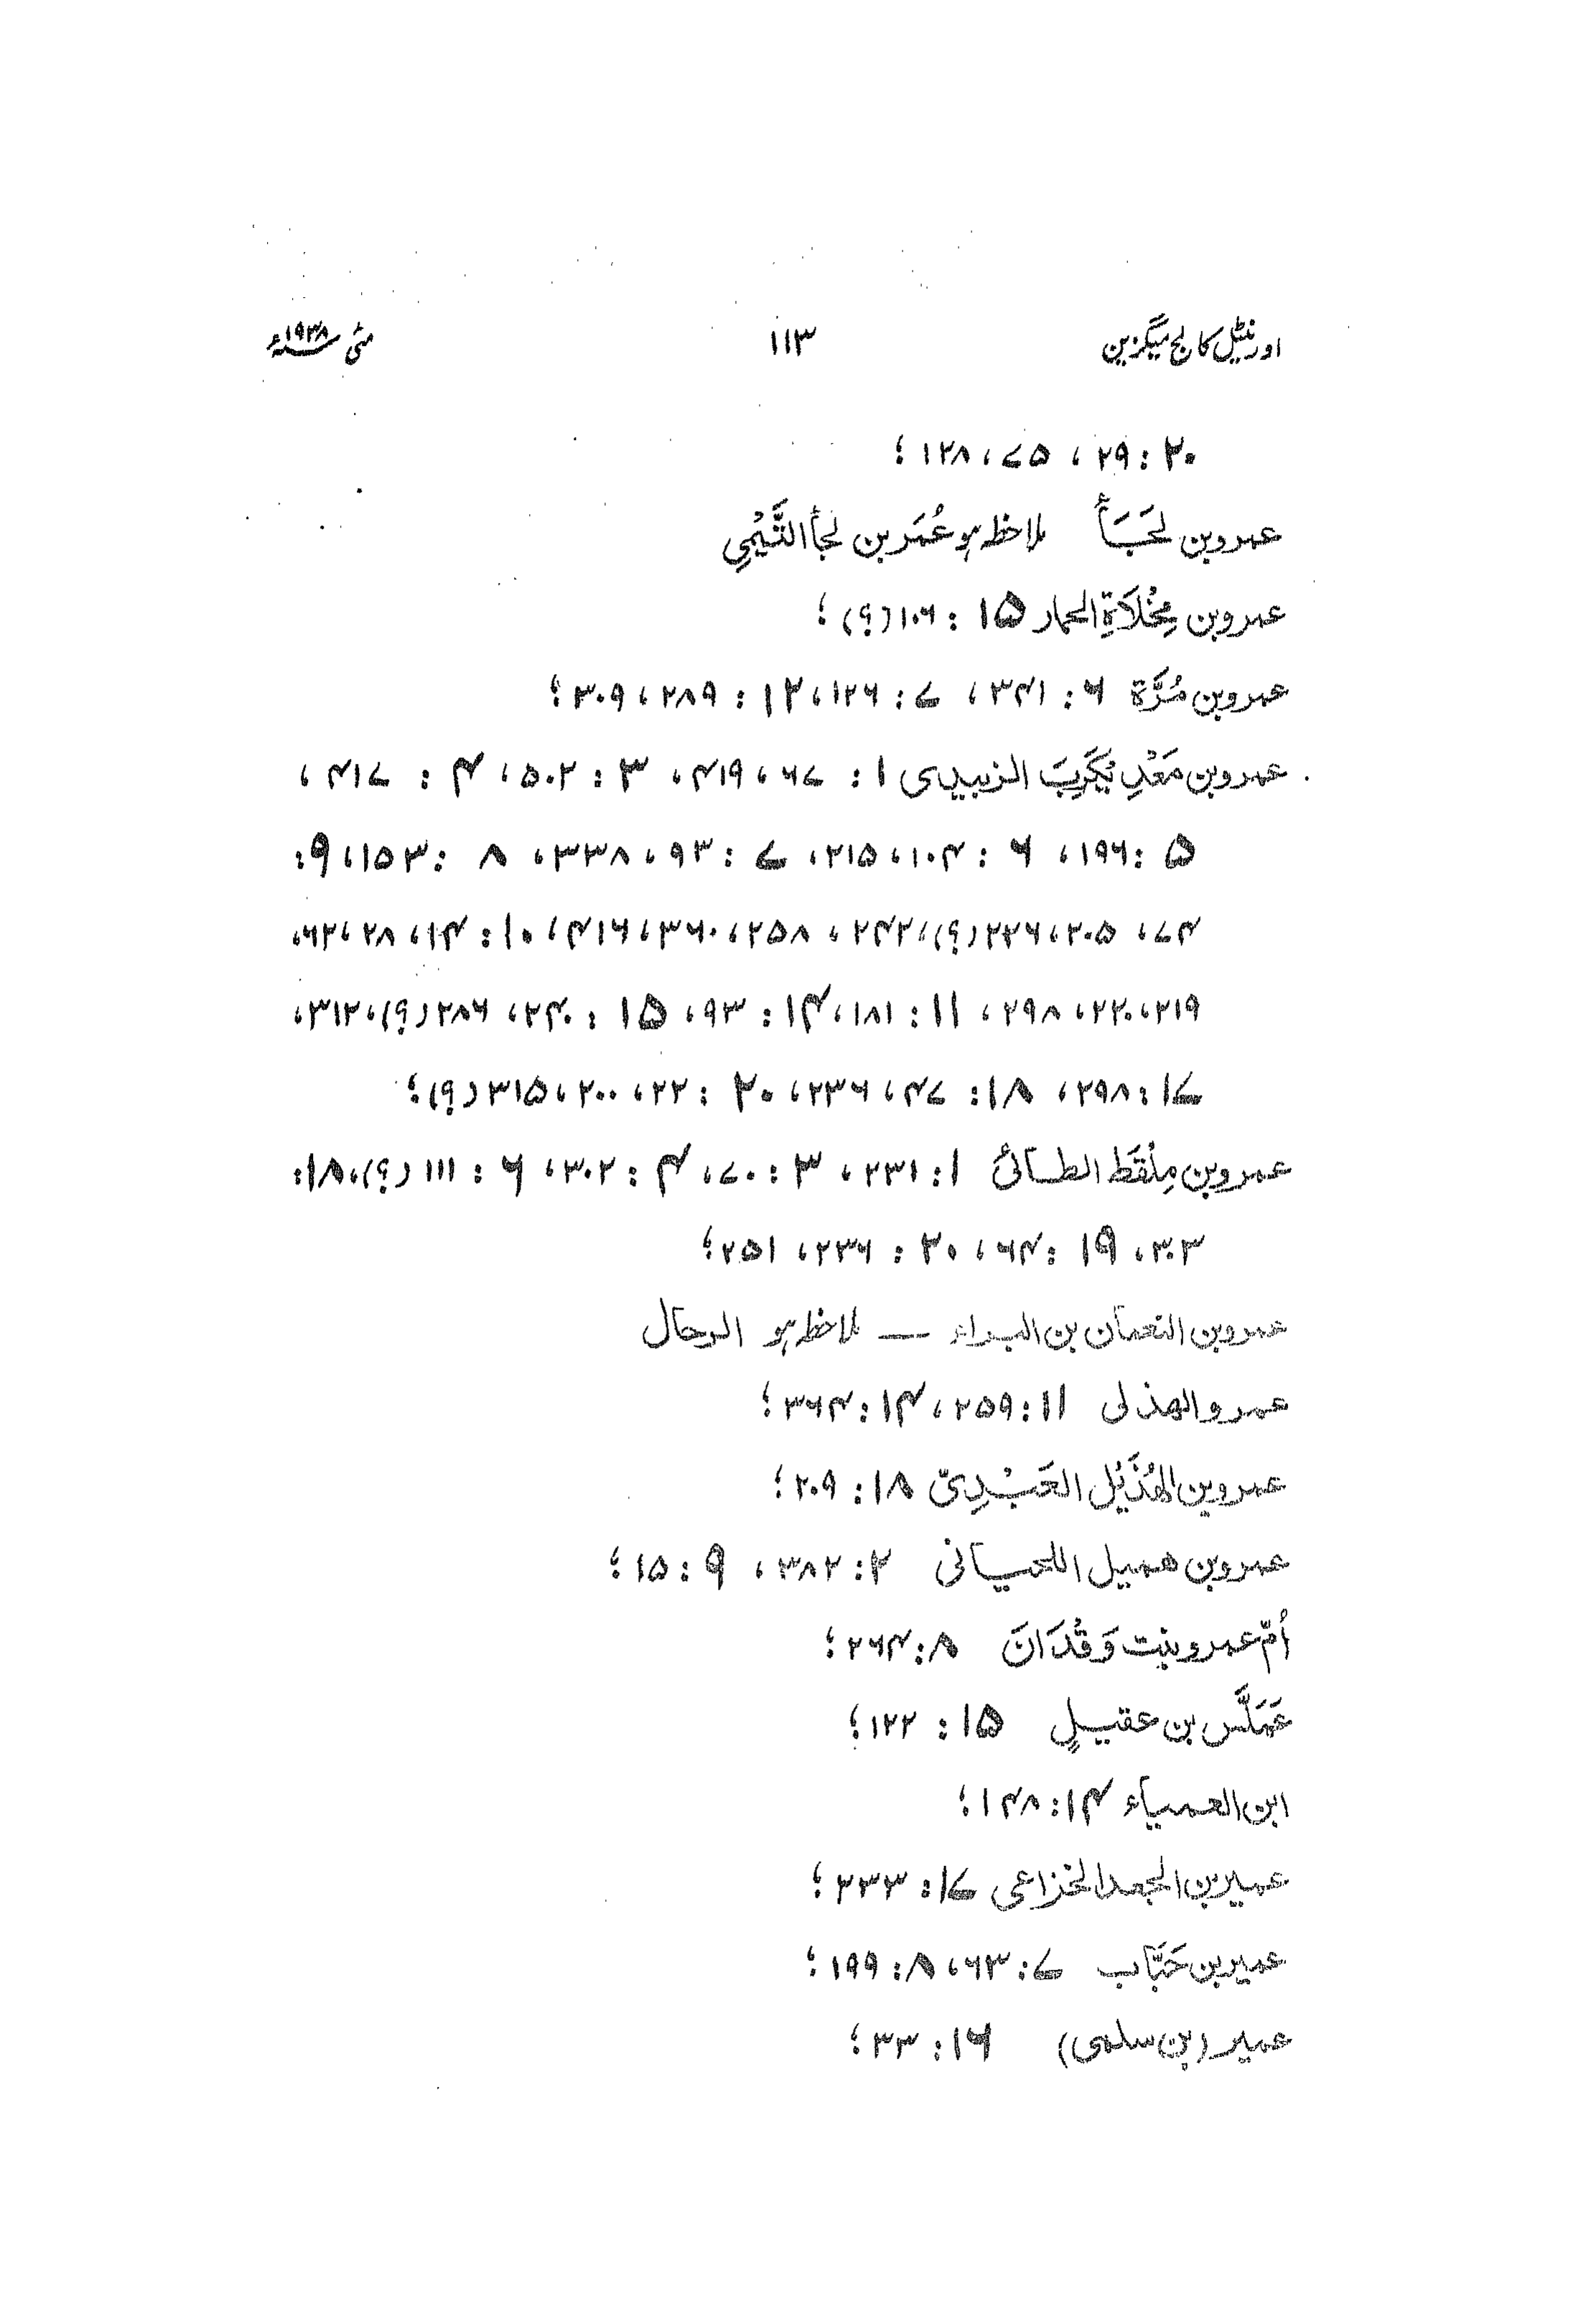 اورنٹیل کالج میگزین ۱۱۳ مئی ۱۹۳۸ء
۲۰ : ۲۹ ، ۷۵ ، ۱۲۸ ؛
عمرو بن لَجَأ ملاحظہ ہو عُمَر بن لجأ التَّیْمِي
عمرو بن مِخْلَاةِ الحمار ۱۵ : ۱۰۶ (؟) ؛
عمرو بن مُرَّة ۶ : ۳۴۱ ، ۷ : ۱۲۶ ، ۱۲ : ۲۸۹ ، ۳۰۹ ؛
عمرو بن مَعْدِ یْکَرِبَ الزبیدی ۱ : ۶۷ ، ۴۱۹ ، ۳ : ۵۰۲ ، ۴ : ۴۱۷ ،
۵ : ۱۹۶ ، ۶ : ۱۰۴ ، ۲۱۵ ، ۷ : ۹۳ ، ۳۳۸ ، ۸ : ۱۵۳ ، ۹ :
۴۷ ، ۲۰۵ ، ۲۲۶ (؟) ، ۲۴۲ ، ۲۵۸ ، ۳۶۰ ، ۴۱۶ ، ۱۰ : ۱۴ ، ۲۸ ، ۶۲ ،
۲۱۹ ، ۲۲۰ ، ۲۹۸ ، ۱۱ : ۱۸۱ ، ۱۴ : ۹۳ ، ۱۵ : ۲۴۰ ، ۲۸۶ (؟) ، ۳۱۲ ،
۱۷ : ۲۹۸ ، ۱۸ : ۴۷ ، ۲۳۶ ، ۲۰ : ۲۲ ، ۲۰۰ ، ۳۱۵ (؟) ؛
عمرو بن مِلْقَط الطائیَ ۱ : ۲۳۱ ، ۳ : ۷۰ ، ۴ : ۳۰۲ ، ۶ : ۱۱۱ (؟) ، ۱۸ :
۳۰۳ ، ۱۹ : ۶۴ ، ۲۰ : ۲۳۶ ، ۲۵۱ ؛
عمرو بن النعمان بن البراء — ملاحظہ ہو الرحال
عمرو الهذلی ۱۱ : ۲۵۹ ، ۱۴ : ۳۶۴ ؛
عمرو بن الهُذَیْل العَبْدِیّ ۱۸ : ۲۰۹ ؛
عمرو بن همیل اللحیانی ۲ : ۳۸۲ ، ۹ : ۱۵ ؛
أمّ عمرو بنت وَقْدَانَ ۸ : ۲۶۴ ؛
عَمَلَّس بن عقیلٍ ۱۵ : ۱۲۲ ؛
ابن العمیاء ۱۴ : ۱۴۸ ؛
عمیر بن الجعد الخزاعی ۱۷ : ۲۳۳ ؛
عمیر بن حَبَّاب ۷ : ۶۳ ، ۸ : ۱۹۹ ؛
عمیر (بن سلمی) ۱۶ : ۳۳ ؛